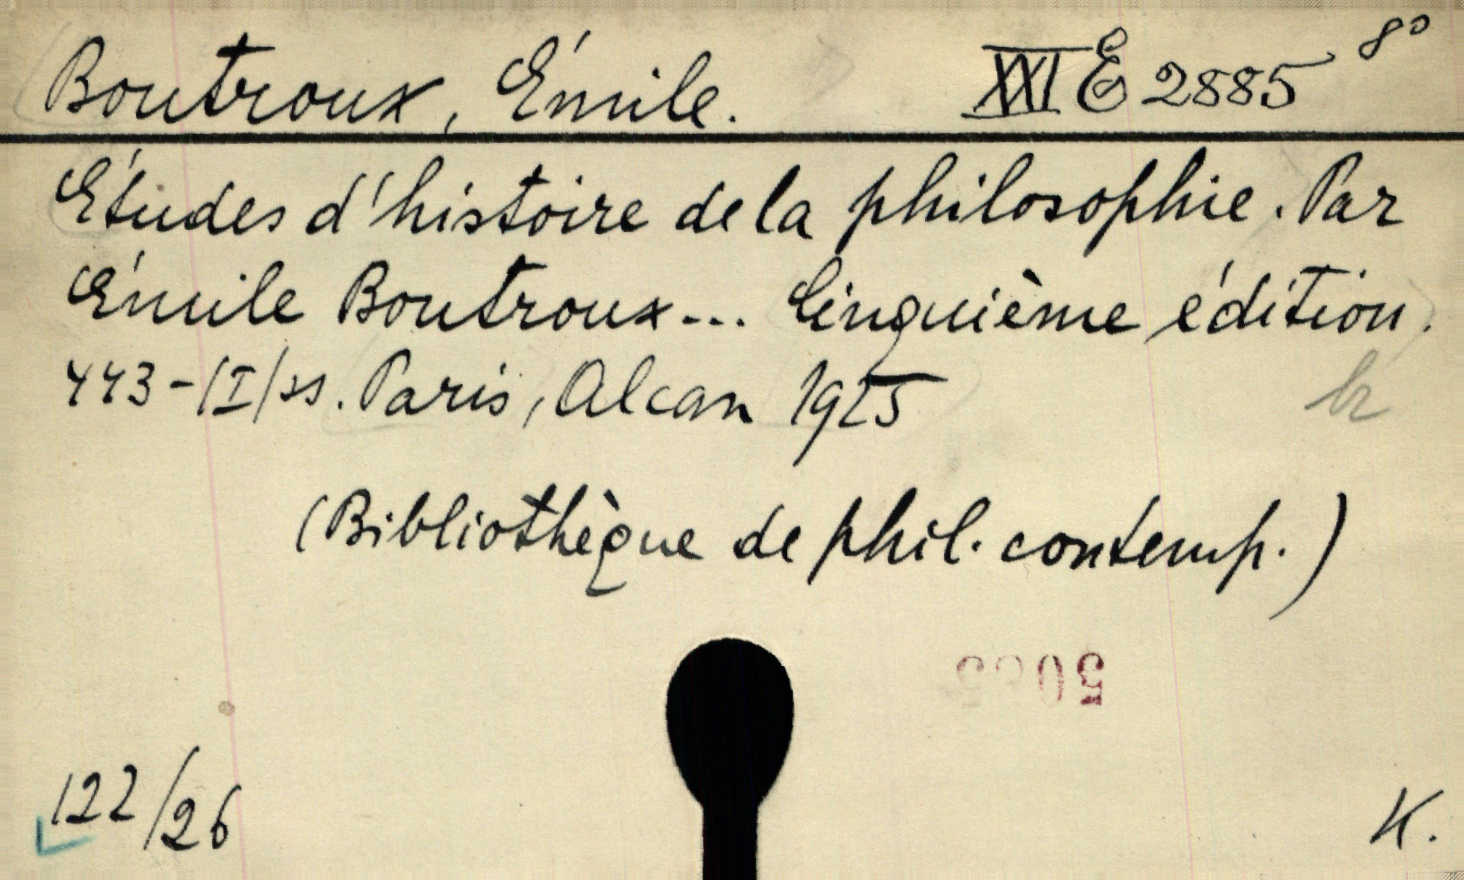 Boutroux, Émile. XXI E 2885 8°
Études d'histoire de la philosophie. Par
Émile Boutroux... Cinquième édition.
443-/I/ss. Paris, Alcan 1925
(Bibliothèque de phil. contemp.)
122/26
K.